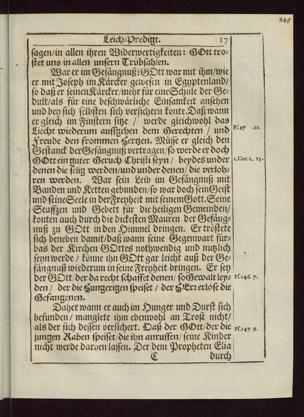 345
Leich-Predigt. 17
sagen/in allen ihren Widerwertigkeiten: GOtt tro-
stet uns in allen unsern Trübsahlen.
War er im Gefängnuß: GOtt war mit ihm/wie
er mit Joseph im Kärcker gewesen in Egyptenland/
so daß er seinen Kärcker/mehr für eine Schule der Ge-
dult/als für eine beschwärliche Einsamkeit ansehen
und bey sich selbsten sich versichern konte. Daß wann
er gleich im Finstern sitz/ werde gleichwohl das
Liecht wiederum auffgehen dem Gerechten / und
Freude den frommen Hertzen. Müsse er gleich den
Gestanck der Gefängnuß vertragen/so werde er doch
GOtt ein guter Geruch Christi seyn/ beydes under
denen die selig werden/und under denen/ die verloh-
ren werden. War sein Leib in Gefängnuß mit
Banden und Ketten gebunden/so war doch sein Geist
und seine Seele in der Freyheit mit seinem Gott. Seine
Seufftzen und Gebett für die heiligen Gemeinden/
konten auch durch die dickesten Mauren der Gefäng-
nuß zu GOtt in den Himmel dringen. Er tröstete
sich beneben damit/daß wann seine Gegenwart für-
bas der Kirchen GOttes nothwendig und nutzlich
seyn werde / könne ihn GOtt gar leicht auß der Ge-
fängnuß wiederum in seine Freyheit bringen. Er sey
der GOtt der da recht schaffet denen/ so Gewalt ley-
den / der die Hungerigen speiset / der HErr erlöse die
Gefangenen.
Daher wann er auch im Hunger und Durst sich
befunden / manglete ihm ebenwohl an Trost nicht/
als der sich dessen versichert. Daß der GOtt/der die
jungen Raben speiset/die ihn anruffen/ seine Kinder
nicht werde darben lassen. Der dem Propheten Elia
C durch
Ps. 97 .11.
2. Cor. 2, 15.
Ps. 146. 7.
Ps. 147. 9.